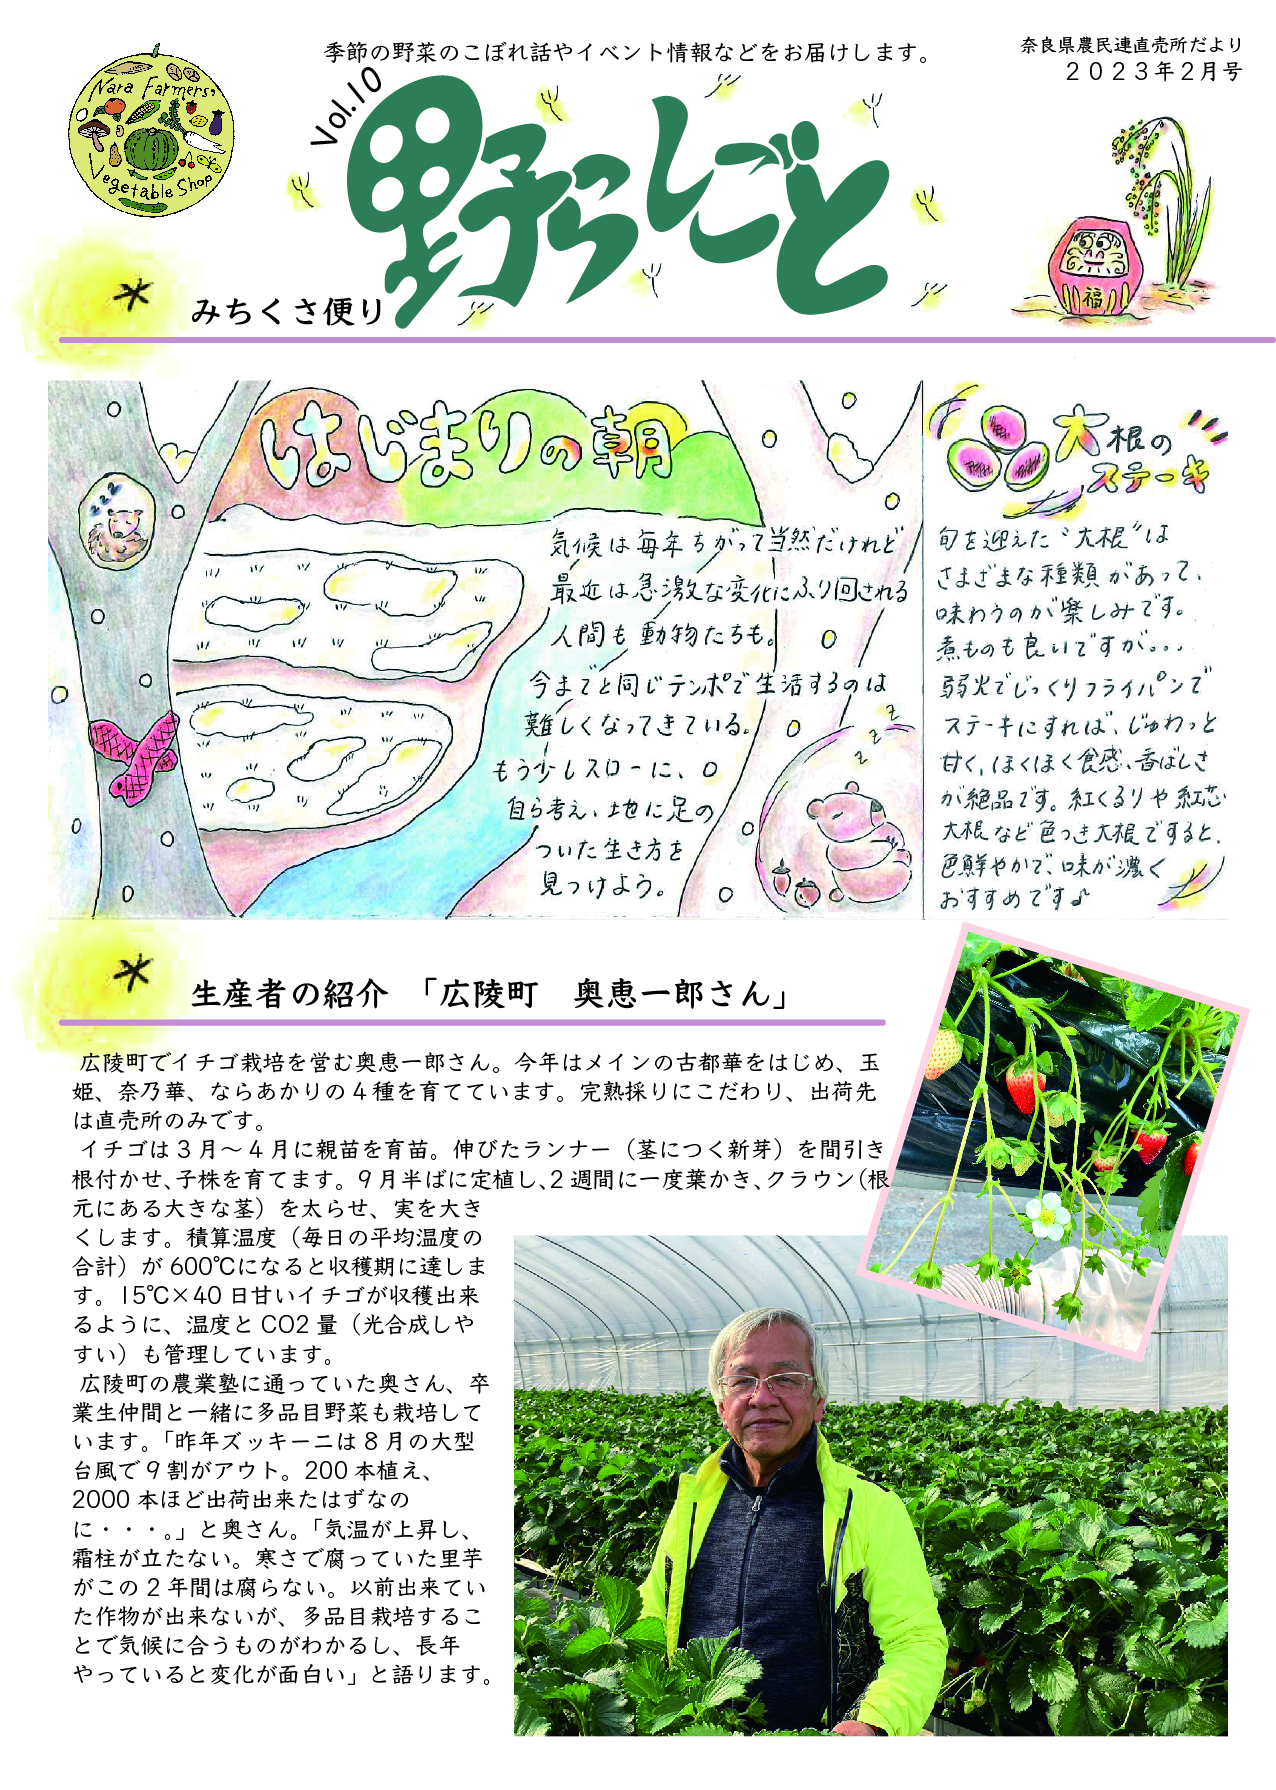 季節の野菜のこぼれ話やイベント情報などをお届けします。
奈良県農民連直売所だより
２０２３年２月号
Nara Farmers'
Vegetable Shop
Vol.10
野らしごと
福
みちくさ便り
はじまりの朝
気候は毎年ちがって当然だけれど
最近は急激な変化にふり回される
人間も動物たちも。
今までと同じテンポで生活するのは
難しくなってきている。
もう少しスローに、
自ら考え、地に足の
ついた生き方を
見つけよう。
z
z
z
大根の
ステーキ
旬を迎えた“大根”は
さまざまな種類があって、
味わうのが楽しみです。
煮ものも良いですが。。。
弱火でじっくりフライパンで
ステーキにすれば、じゅわっと
甘く、ほくほく食感、香ばしさ
が絶品です。紅くるりや紅芯
大根など色つき大根ですると、
色鮮やかで、味が濃く
おすすめです♪
生産者の紹介　「広陵町　奥恵一郎さん」
広陵町でイチゴ栽培を営む奥恵一郎さん。今年はメインの古都華をはじめ、玉
姫、奈乃華、ならあかりの４種を育てています。完熟採りにこだわり、出荷先
は直売所のみです。
イチゴは３月～４月に親苗を育苗。伸びたランナー（茎につく新芽）を間引き
根付かせ、子株を育てます。９月半ばに定植し、２週間に一度葉かき、クラウン（根
元にある大きな茎）を太らせ、実を大き
くします。積算温度（毎日の平均温度の
合計）が 600℃になると収穫期に達しま
す。15℃×40 日甘いイチゴが収穫出来
るように、温度と CO2 量（光合成しや
すい）も管理しています。
広陵町の農業塾に通っていた奥さん、卒
業生仲間と一緒に多品目野菜も栽培して
います。「昨年ズッキーニは８月の大型
台風で９割がアウト。200 本植え、
2000 本ほど出荷出来たはずなの
に・・・。」と奥さん。「気温が上昇し、
霜柱が立たない。寒さで腐っていた里芋
がこの２年間は腐らない。以前出来てい
た作物が出来ないが、多品目栽培するこ
とで気候に合うものがわかるし、長年
やっていると変化が面白い」と語ります。